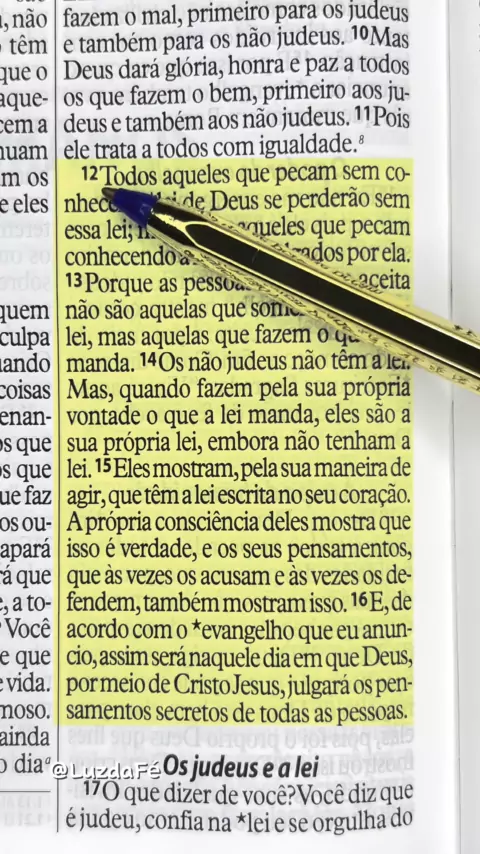 , não
têm
que o
aque-
cem a
nuam
m os
e eles
quem
culpa
uando
coisas
enan-
os que
os que
ue faz
os ou-
apará
rá que
, a to-
Você
e que
e vida.
moso.
ainda
o diaᵃ
fazem o mal, primeiro para os judeus
e também para os não judeus. 10Mas
Deus dará glória, honra e paz a todos
os que fazem o bem, primeiro aos ju-
deus e também aos não judeus. 11Pois
ele trata a todos com igualdade.g
12Todos aqueles que pecam sem co-
de Deus se perderão sem
essa lei; aqueles que pecam
conhecendo por ela.
13Porque as aceita
não são aquelas que
lei, mas aquelas que fazem o
manda. 14Os não judeus não têm a lei.
Mas, quando fazem pela sua própria
vontade o que a lei manda, eles são a
sua própria lei, embora não tenham a
lei. 15Eles mostram, pela sua maneira de
agir, que têm a lei escrita no seu coração.
A própria consciência deles mostra que
isso é verdade, e os seus pensamentos,
que às vezes os acusam e às vezes os de-
fendem, também mostram isso. 16E, de
acordo com o *evangelho que eu anun-
cio, assim será naquele dia em que Deus,
por meio de Cristo Jesus, julgará os pen-
samentos secretos de todas as pessoas.
@LuzdaFé
Os judeus e a lei
17O que dizer de você? Você diz que
é judeu, confia na *lei e se orgulha do